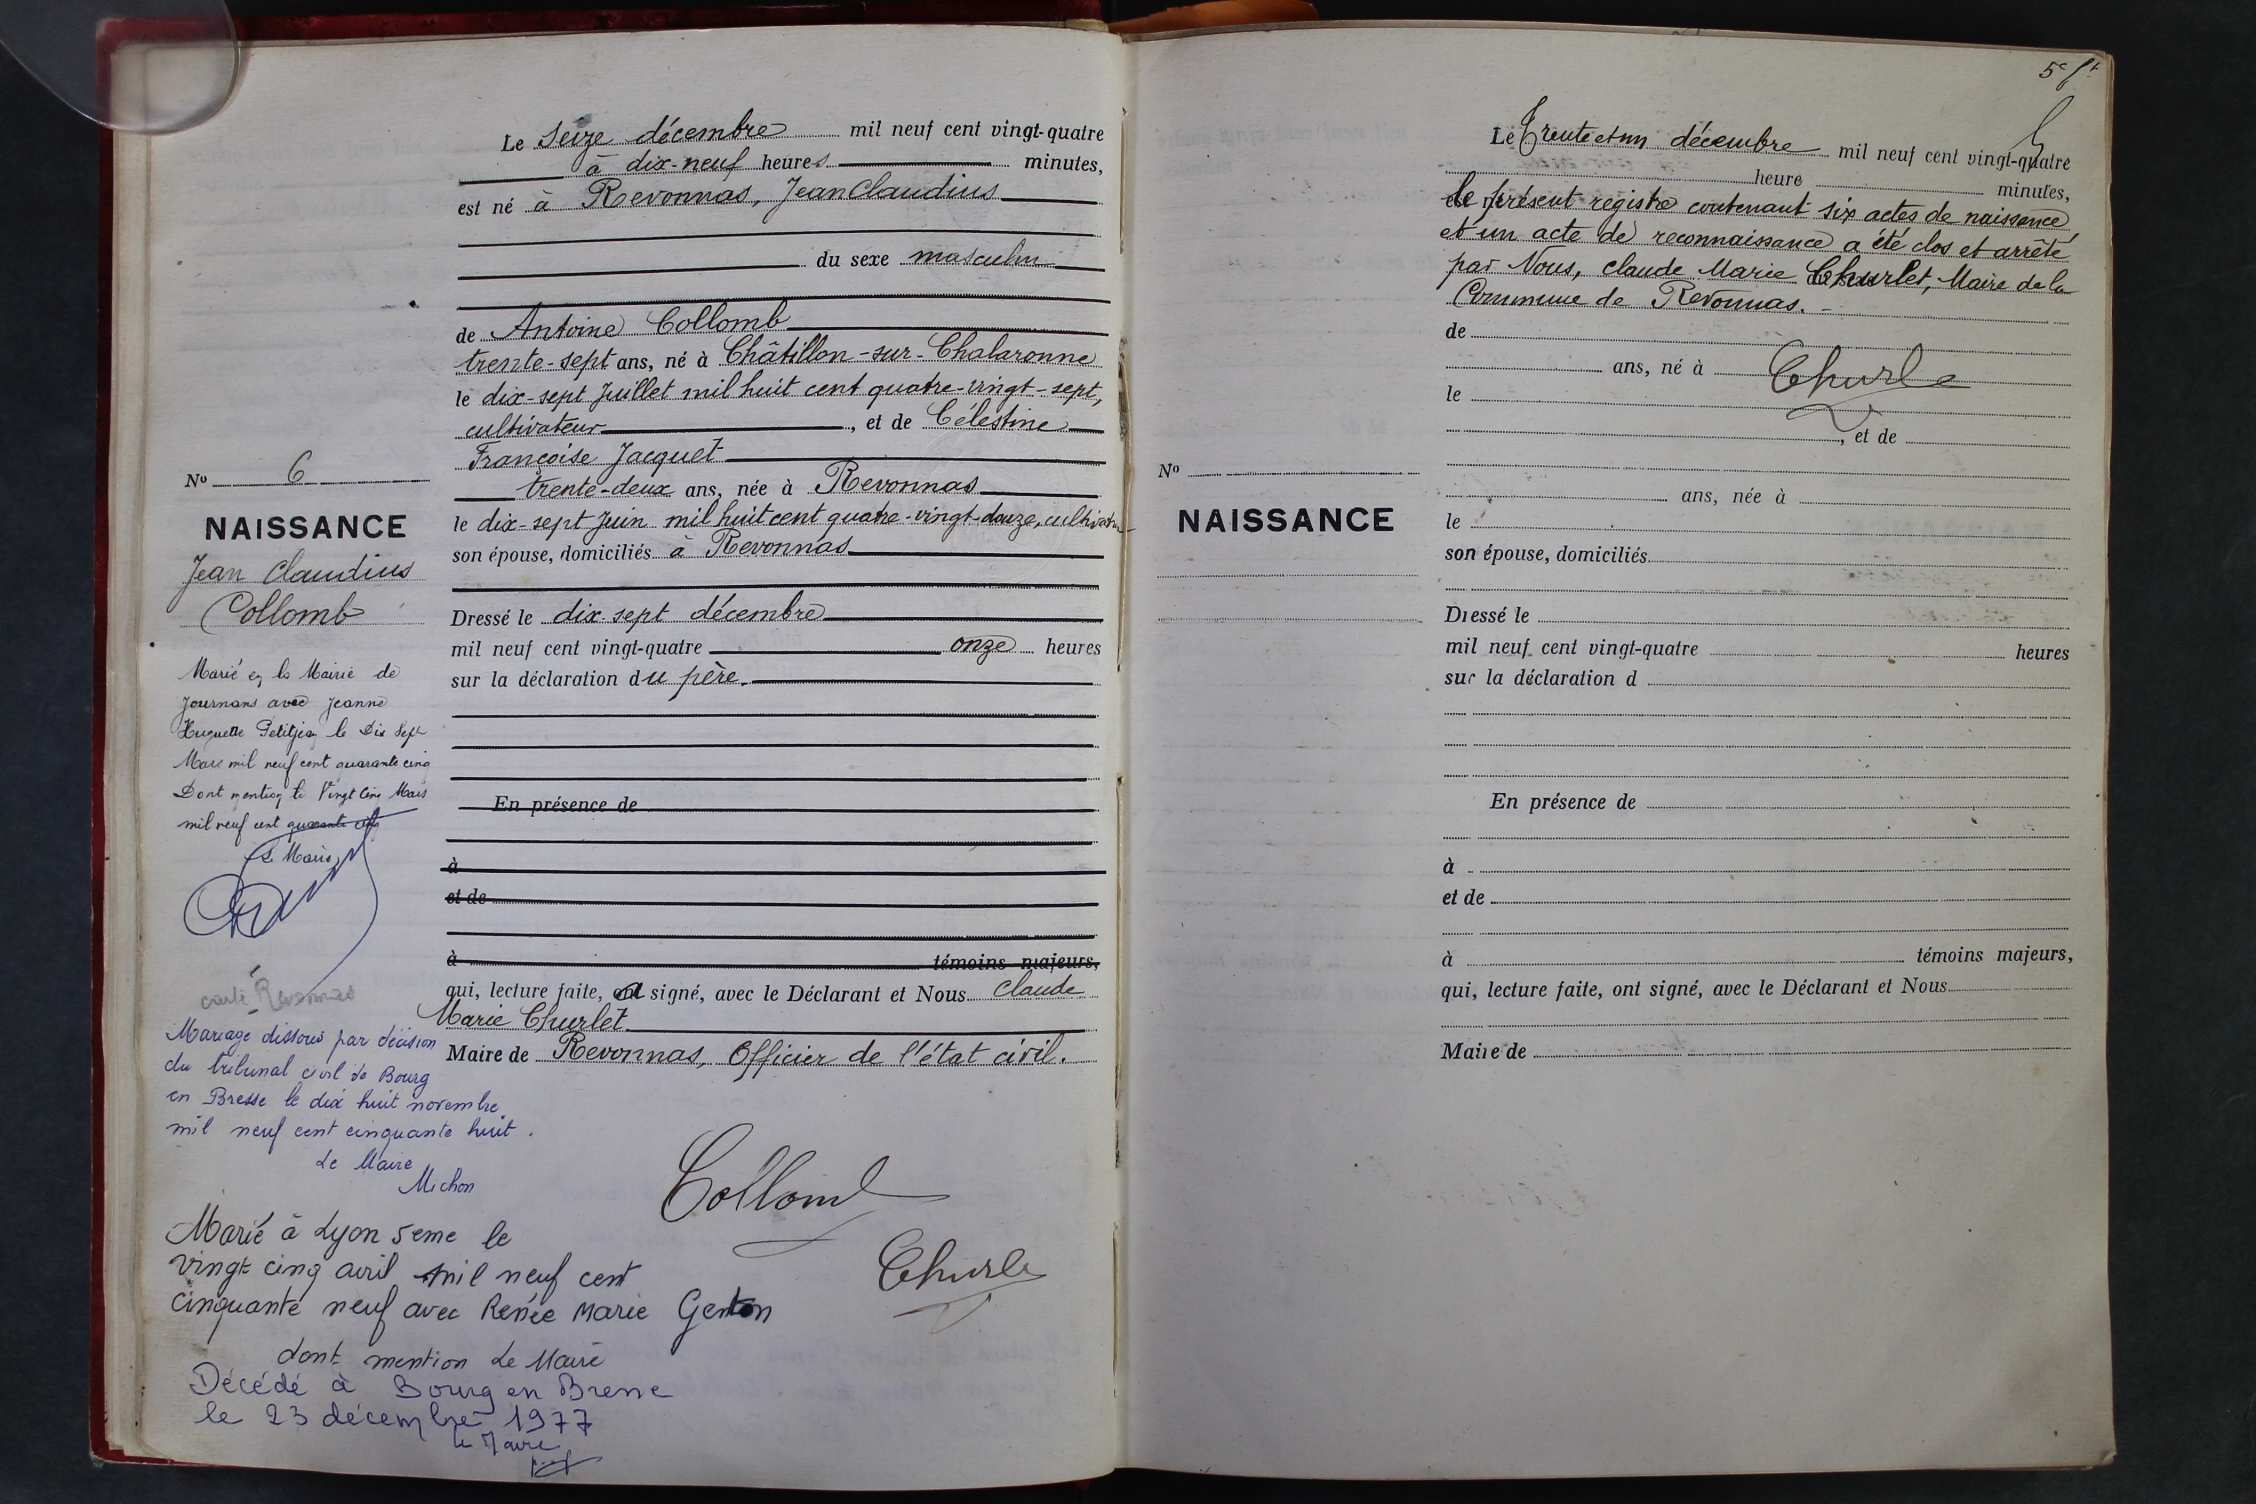 Le seize décembre mil neuf cent vingt-quatre
à dix-neuf heures minutes,
est né à Revonnas, Jean Claudius
du sexe masculin
de Antoine Collomb
trente-sept ans, né à Châtillon-sur-Chalaronne
le dix-sept Juillet mil huit cent quatre-vingt-sept,
cultivateur, et de Célestine
Françoise Jacquet
trente-deux ans, née à Revonnas
le dix-sept Juin mil huit cent quatre-vingt-douze,
son épouse, domiciliés à Revonnas
Dressé le dix-sept décembre
mil neuf cent vingt-quatre onze heures
sur la déclaration du père.
En présence de
à
et de
à témoins majeurs,
qui, lecture faite, a signé, avec le Déclarant et Nous Claude
Marie Churlet
Maire de Revonnas, Officier de l'état civil.
Collomb
Churle
No 6
NAISSANCE
Jean Claudius
Collomb
Marié en la Mairie de
Journans avec Jeanne
Huguette Petitjean le Dix Sept
Mars mil neuf cent quarante cinq
Dont mention le Vingt Cinq Mars
mil neuf cent quarante cinq
Le Maire
Revonnas
Mariage dissous par décision
du tribunal civil de Bourg
en Bresse le dix huit novembre
mil neuf cent cinquante huit.
Le Maire
Michon
Marié à Lyon 5eme le
vingt cinq avril mil neuf cent
cinquante neuf avec Renée Marie Genton
dont mention Le Maire
Décédé à Bourg en Bresse
le 23 décembre 1977
le Maire
5e ft
Le Trente et un décembre mil neuf cent vingt-quatre
heure minutes,
le présent registre contenant six actes de naissance
et un acte de reconnaissance a été clos et arrêté
par Nous, Claude Marie Churlet, Maire de la
Commune de Revonnas.
de
ans, né à
Churle
le
, et de
ans, née à
le
son épouse, domiciliés
Dressé le
mil neuf cent vingt-quatre heures
sur la déclaration d
En présence de
à
et de
à témoins majeurs,
qui, lecture faite, ont signé, avec le Déclarant et Nous
Maire de
No
NAISSANCE